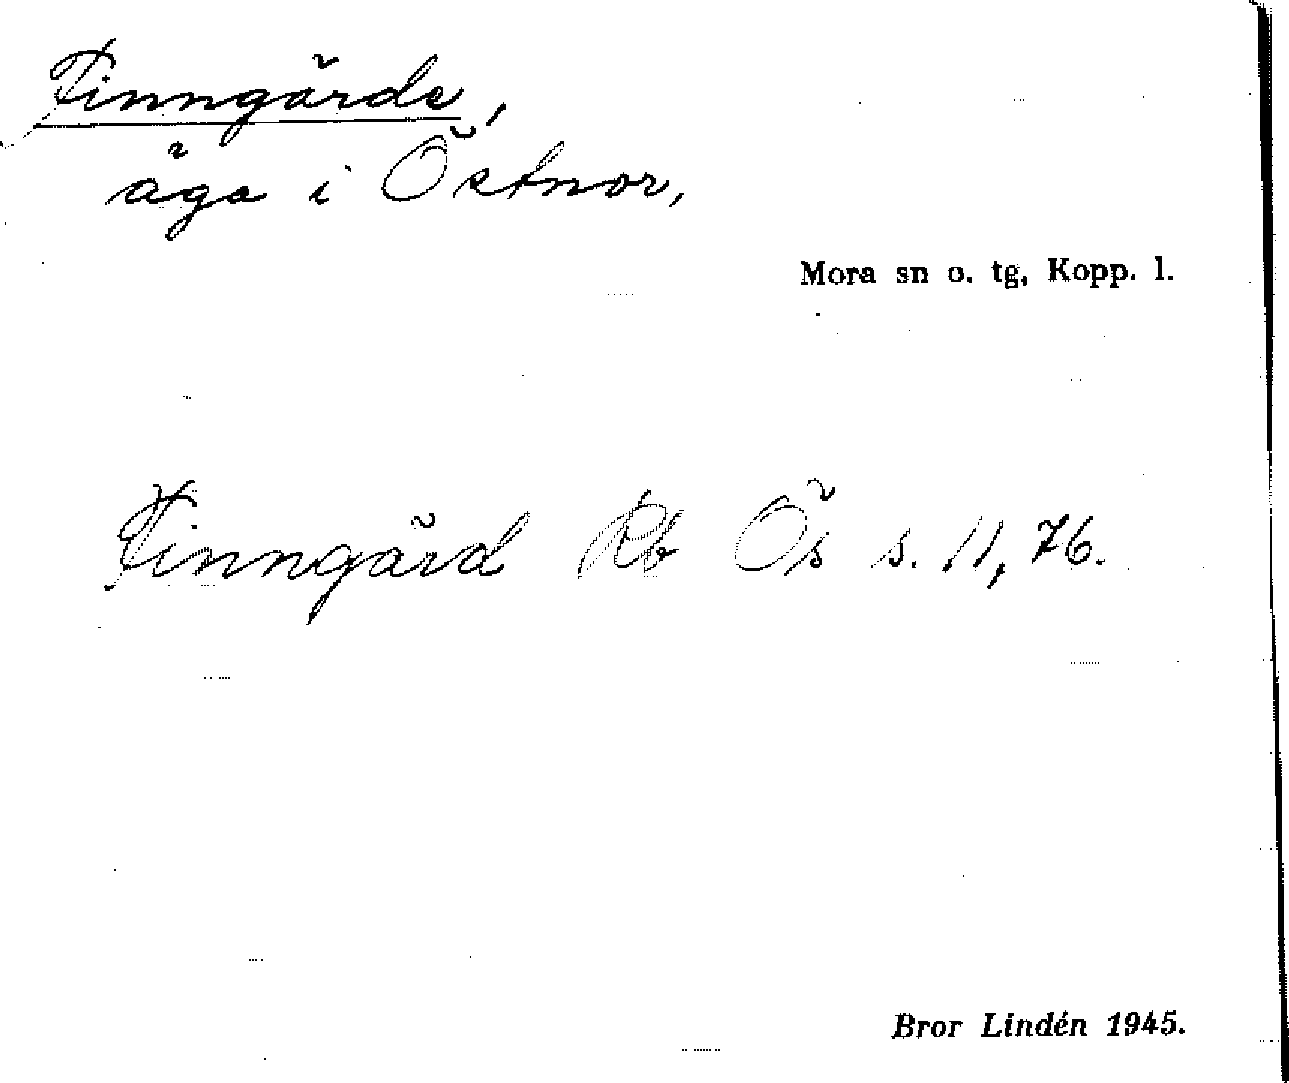 Finngärde,
äga i Östnor,
Mora sn o. tg, Kopp. l.
Finngärd Rb Ös s. 11, 76.
Bror Lindén 1945.